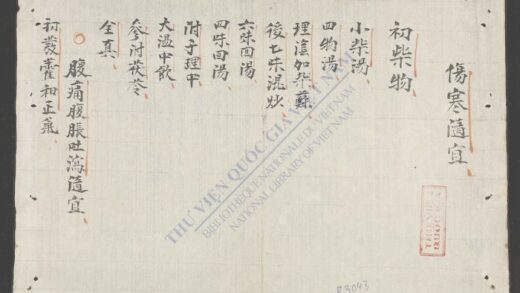 傷寒隨宜
初柴物
小柴湯
四物湯
理陰加柴蘇
後七味混炒
六味回湯
四味回湯
附子理中
大溫中飲
參附茯苓
全真
腹痛腹脹吐瀉隨宜
初發藿和正薬
THƯ VIỆN QUỐC GIA VIỆT NAM
BIBLIOTHÈQUE NATIONALE DU VIETNAM
NATIONAL LIBRARY OF VIETNAM
THƯ VIỆN
QUỐC GIA
R3043